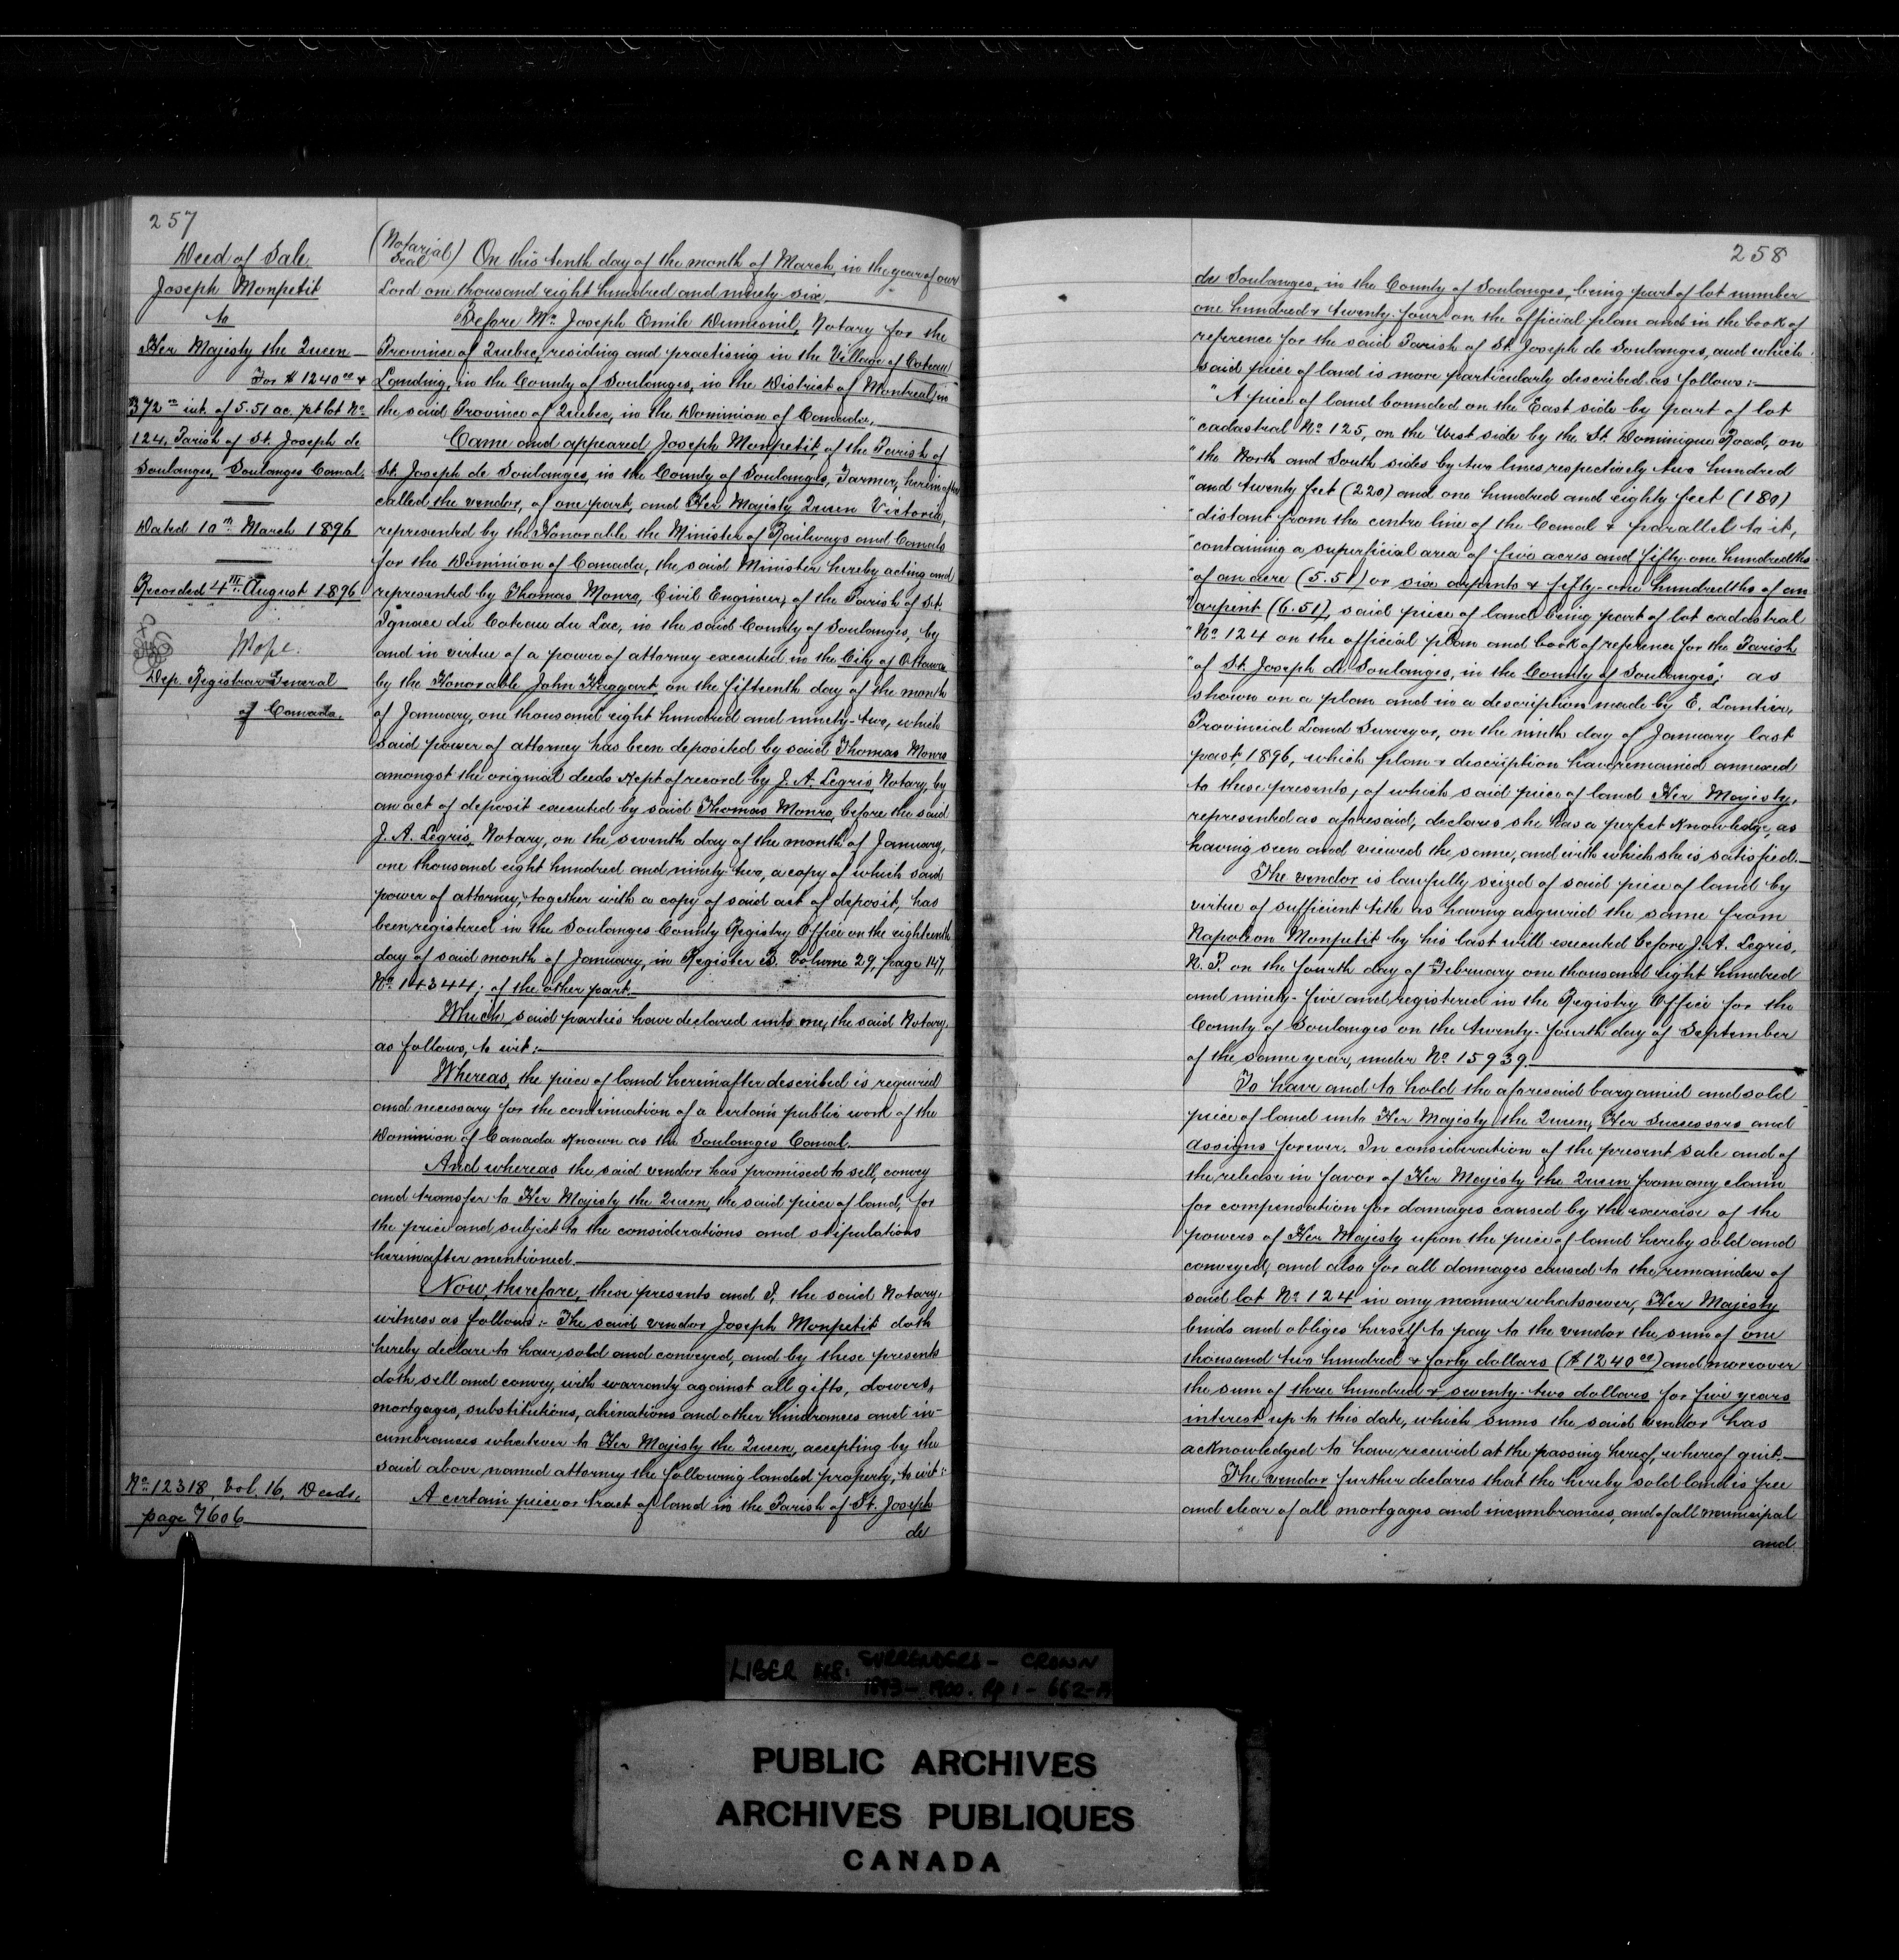 257
Deed of Sale
Joseph Monpetit
to
Her Majesty the Queen
For $1240.00 &
372.00 int. of 5.51 ac. pt lot No.
124, Parish of St. Joseph de
Soulanges, Soulanges Canal.
Dated 10th March 1896
Recorded 4th August 1896
Dep. Registrar General
of Canada.
No. 12318, Vol. 16, Deeds,
page 7606
(Notarial Seal) On this tenth day of the month of March, in the year of our
Lord one thousand eight hundred and ninety-six,
Before Mr. Joseph Emile Dumesnil, Notary for the
Province of Quebec, residing and practising in the Village of Coteau
Landing, in the County of Soulanges, in the District of Montreal, in
the said Province of Quebec, in the Dominion of Canada,
Came and appeared Joseph Monpetit, of the Parish of
St. Joseph de Soulanges, in the County of Soulanges, Farmer, hereinafter
called the vendor, of one part, and Her Majesty Queen Victoria,
represented by the Honorable the Minister of Railways and Canals
for the Dominion of Canada, the said Minister hereby acting and
represented by Thomas Monro, Civil Engineer, of the Parish of St.
Ignace du Coteau du Lac, in the said County of Soulanges, by
and in virtue of a power of attorney executed in the City of Ottawa
by the Honorable John Haggart, on the fifteenth day of the month
of January, one thousand eight hundred and ninety-two, which
said power of attorney has been deposited by said Thomas Monro
amongst the original deeds kept of record by J. A. Legris, Notary, by
an act of deposit executed by said Thomas Monro, before the said
J. A. Legris, Notary, on the seventh day of the month of January,
one thousand eight hundred and ninety-two, a copy of which said
power of attorney, together with a copy of said act of deposit, has
been registered in the Soulanges County Registry Office on the eighteenth
day of said month of January, in Register B. Volume 29, page 147,
No. 14344; of the other part.
Which said parties have declared unto me, the said Notary,
as follows, to wit:
Whereas, the piece of land hereinafter described is required
and necessary for the continuation of a certain public work of the
Dominion of Canada known as the Soulanges Canal.
And whereas the said vendor has promised to sell, convey
and transfer to Her Majesty the Queen, the said piece of land, for
the price and subject to the considerations and stipulations
hereinafter mentioned.
Now, therefore, these presents and I, the said Notary,
witness as follows:- The said vendor Joseph Monpetit doth
hereby declare to have sold and conveyed, and by these presents
doth sell and convey, with warranty against all gifts, dowers,
mortgages, substitutions, alienations and other hindrances and in-
cumbrances whatever to Her Majesty the Queen, accepting by the
said above named attorney the following landed property, to wit:
A certain piece or tract of land in the Parish of St. Joseph
de
258
de Soulanges, in the County of Soulanges, being part of lot number
one hundred & twenty-four on the official plan and in the book of
reference for the said Parish of St. Joseph de Soulanges, and which
said piece of land is more particularly described as follows:-
"A piece of land bounded on the East side by part of lot
"cadastral No. 125, on the West side by the St. Dominique Road, on
"the North and South sides by two lines respectively two hundred
"and twenty feet (220) and one hundred and eighty feet (180)
"distant from the centre line of the Canal & parallel to it,
"containing a superficial area of five acres and fifty-one hundredths
"of an acre (5.51) or six arpents & fifty-one hundredths of an
"arpent (6.51), said piece of land being part of lot cadastral
"No. 124 on the official plan and book of reference for the Parish
"of St. Joseph de Soulanges, in the County of Soulanges"; as
shown on a plan and in a description made by E. Lantier,
Provincial Land Surveyor, on the ninth day of January last
past, 1896, which plan & description have remained annexed
to these presents, of which said piece of land Her Majesty,
represented as aforesaid, declares she has a perfect knowledge, as
having seen and viewed the same, and with which she is satisfied.
The vendor is lawfully seized of said piece of land by
virtue of sufficient title as having acquired the same from
Napoleon Monpetit by his last will executed before J. A. Legris,
N. P. on the fourth day of February one thousand eight hundred
and ninety-five and registered in the Registry Office for the
County of Soulanges on the twenty-fourth day of September
of the same year, under No. 15939.
To have and to hold the aforesaid bargained and sold
piece of land unto Her Majesty the Queen, Her Successors and
Assigns forever. In consideration of the present sale and of
the release in favor of Her Majesty the Queen from any claim
for compensation for damages caused by the exercise of the
powers of Her Majesty upon the piece of land hereby sold and
conveyed, and also for all damages caused to the remainder of
said lot No. 124 in any manner whatsoever, Her Majesty
binds and obliges herself to pay to the vendor the sum of one
thousand two hundred & forty dollars ($1240.00) and moreover
the sum of three hundred & seventy-two dollars for five years
interest up to this date, which sums the said vendor has
acknowledged to have received at the passing hereof, whereof quit.
The vendor further declares that the hereby sold land is free
and clear of all mortgages and incumbrances, and of all municipal
and
LIBER 148: SURRENDERS - CROWN
1893 - 1900. Pp 1 - 662-A
PUBLIC ARCHIVES
ARCHIVES PUBLIQUES
CANADA